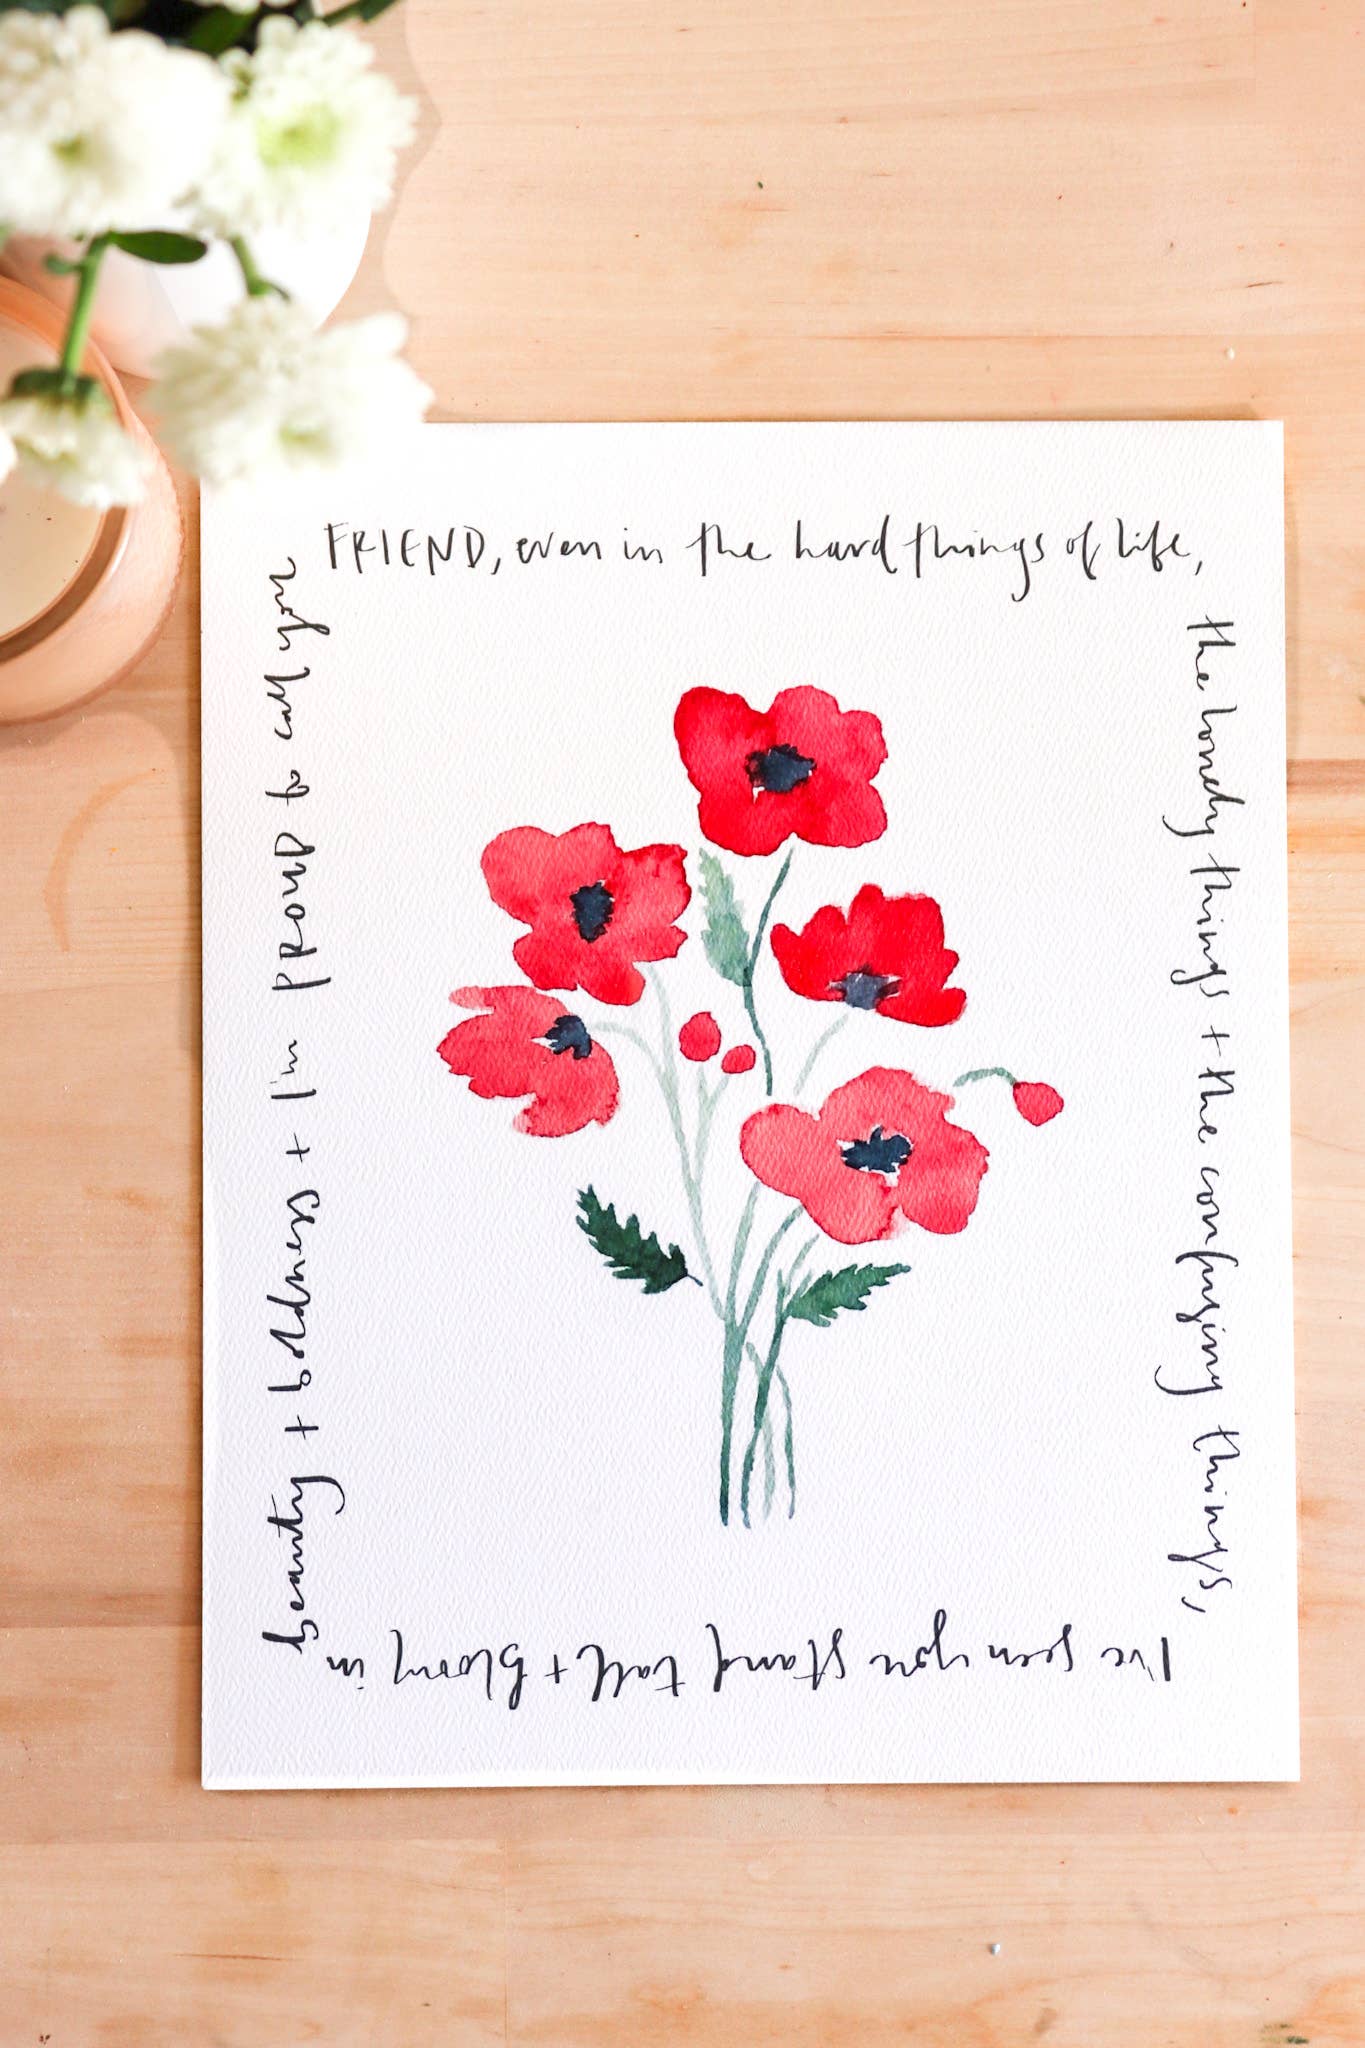 FRIEND, even in the hard things of life,
the lonely things + the confusing things,
I've seen you stand tall + bloom in
beauty + boldness + I'm PROUD to call you